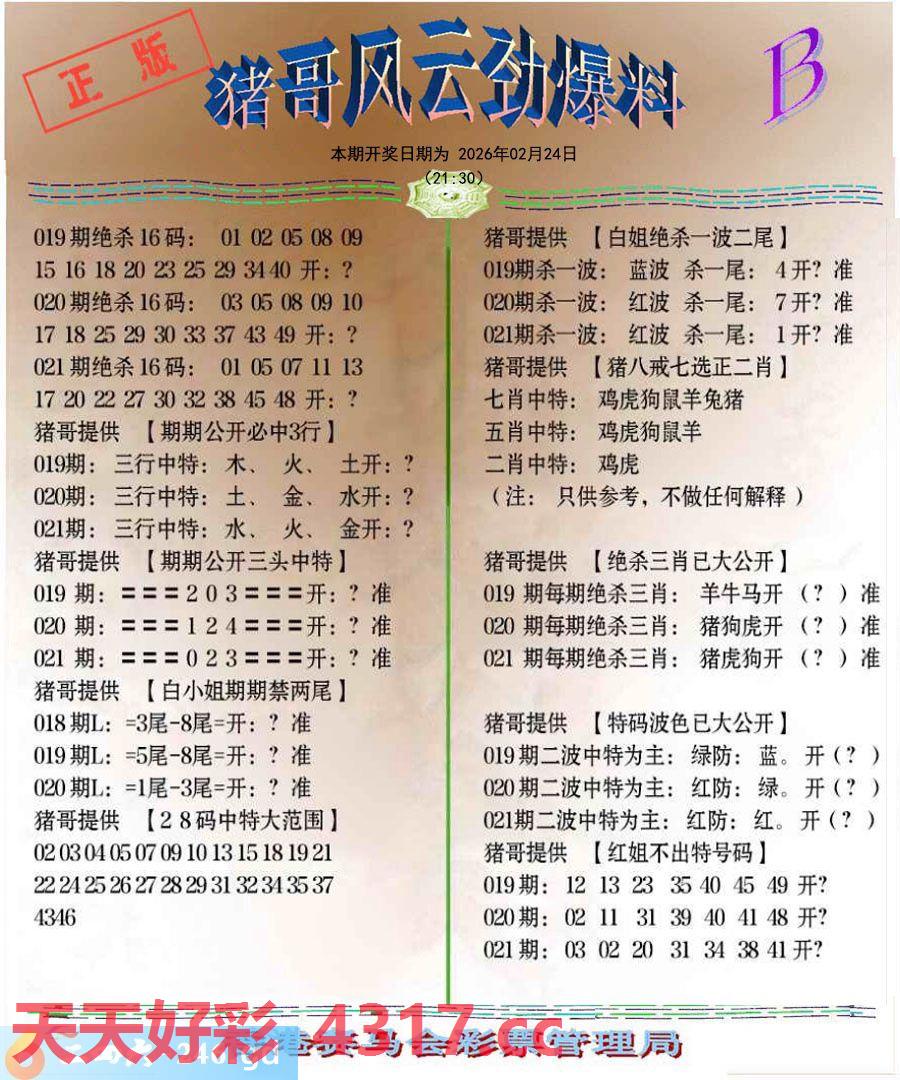 正版
猪哥风云劲爆料
B
本期开奖日期为 2026年02月24日
（21:30）
019期绝杀16码： 01 02 05 08 09
15 16 18 20 23 25 29 34 40 开：？
020期绝杀16码： 03 05 08 09 10
17 18 25 29 30 33 37 43 49 开：？
021期绝杀16码： 01 05 07 11 13
17 20 22 27 30 32 38 45 48 开：？
猪哥提供 【期期公开必中3行】
019期：三行中特：木、 火、 土开：？
020期：三行中特：土、 金、 水开：？
021期：三行中特：水、 火、 金开：？
猪哥提供 【期期公开三头中特】
019 期：===2 0 3===开：？准
020 期：===1 2 4===开：？准
021 期：===0 2 3===开：？准
猪哥提供 【白小姐期期禁两尾】
018期L：=3尾-8尾=开：？准
019期L：=5尾-8尾=开：？准
020期L：=1尾-3尾=开：？准
猪哥提供 【28码中特大范围】
02 03 04 05 07 09 10 13 15 18 19 21
22 24 25 26 27 28 29 31 32 34 35 37
43 46
猪哥提供 【白姐绝杀一波二尾】
019期杀一波： 蓝波 杀一尾： 4开？准
020期杀一波： 红波 杀一尾： 7开？准
021期杀一波： 红波 杀一尾： 1开？准
猪哥提供 【猪八戒七选正二肖】
七肖中特： 鸡虎狗鼠羊兔猪
五肖中特： 鸡虎狗鼠羊
二肖中特： 鸡虎
（注： 只供参考，不做任何解释）
猪哥提供 【绝杀三肖已大公开】
019 期每期绝杀三肖： 羊牛马开（？）准
020 期每期绝杀三肖： 猪狗虎开（？）准
021 期每期绝杀三肖： 猪虎狗开（？）准
猪哥提供 【特码波色已大公开】
019期二波中特为主： 绿防： 蓝。开（？）
020期二波中特为主： 红防： 绿。开（？）
021期二波中特为主： 红防： 红。开（？）
猪哥提供 【红姐不出特号码】
019期： 12 13 23 35 40 45 49 开？
020期： 02 11 31 39 40 41 48 开？
021期： 03 02 20 31 34 38 41 开？
天天好彩 4317.cc
港赛马会彩票管理局